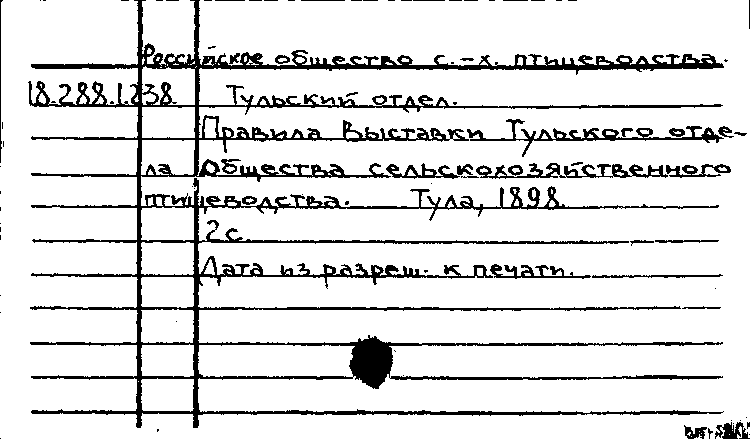 Российское общество с.-х. птицеводства.
18.288.1.238 Тульский отдел.
Правила Выставки Тульского отде-
ла Общества сельскохозяйственного
птицеводства. Тула, 1898.
2 с.
Дата из разреш. к печати.